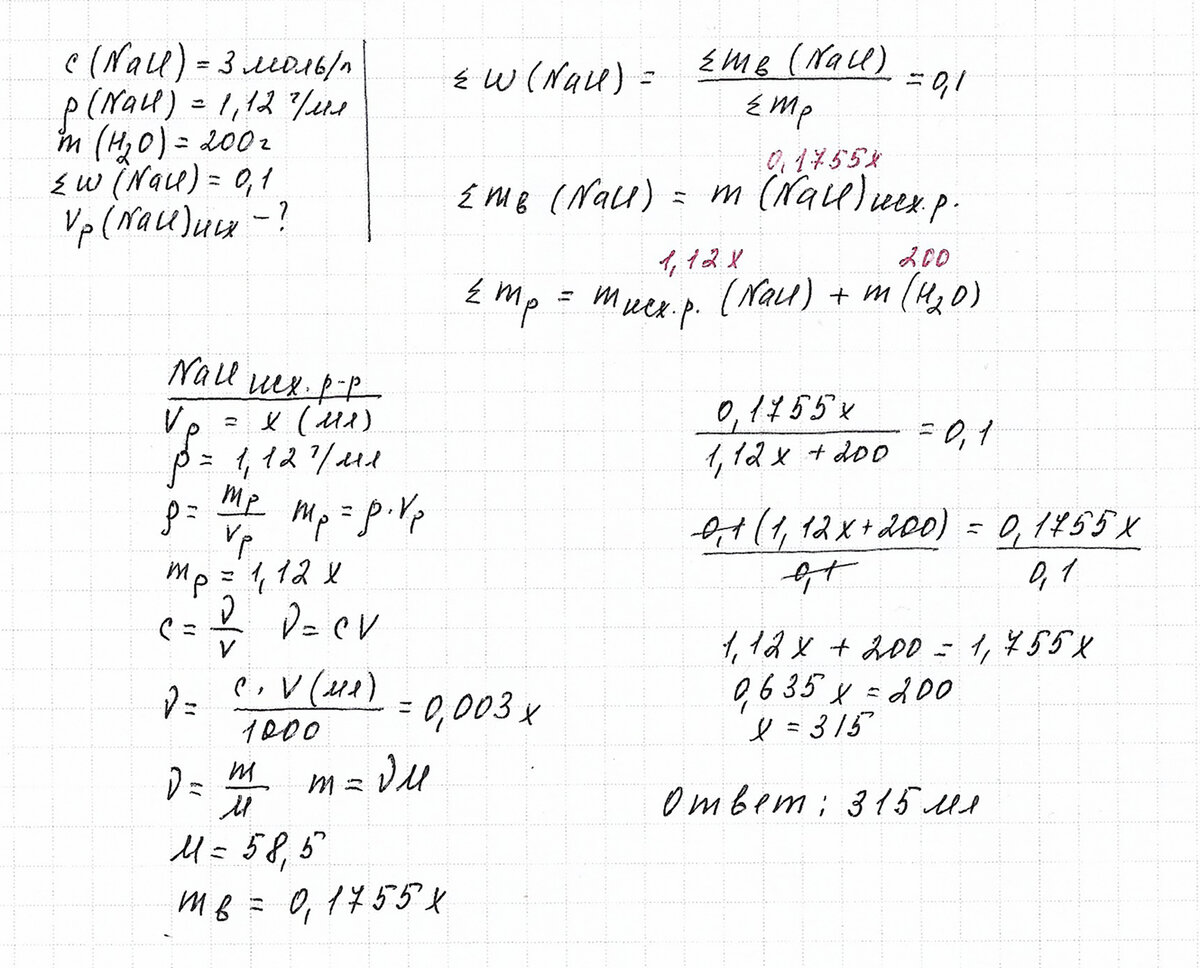 c (NaCl) = 3 моль/л
ρ (NaCl) = 1,12 г/мл
m (H₂O) = 200 г
Σ w (NaCl) = 0,1
Vр (NaCl) исх – ?
Σ w (NaCl) = Σ mв (NaCl) / Σ mр = 0,1
0,1755x
Σ mв (NaCl) = m (NaCl) исх. р.
1,12 x 200
Σ mр = m исх. р. (NaCl) + m (H₂O)
NaCl исх. р-р
Vр = x (мл)
ρ = 1,12 г/мл
ρ = mр / Vр mр = ρ · Vр
mр = 1,12 x
c = ν / V ν = cV
ν = c · V (мл) / 1000 = 0,003 x
ν = m / M m = νM
M = 58,5
mв = 0,1755 x
0,1755 x / 1,12 x + 200 = 0,1
0,1 (1,12x + 200) / 0,1 = 0,1755 x / 0,1
1,12x + 200 = 1,755x
0,635 x = 200
x = 315
Ответ: 315 мл